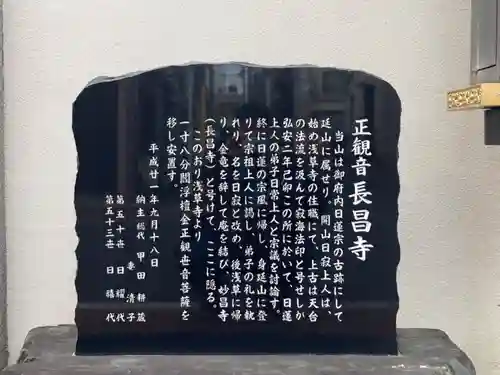 正観音長昌寺
当山は御府内日蓮宗の古跡にして
延山に属せり。開山日寂上人は、
始め浅草寺の住職にて、上古は天台
の法流を汲んで寂海法印と号せしが
弘安二年己卯この所に於いて、日蓮
上人の弟子日常上人と宗議を討論す。
終に日蓮の宗風に帰し、身延山に登
りて宗祖上人に謁し、弟子の礼を執
れり。名を日寂と改め、後浅草に帰
り、金竜を辞して庵を結び、妙昌寺
(長昌寺)と号けて、ここに隠る。
このおり浅草寺より
一寸八分閻浮檀金正観世音菩薩を
移し安置す。
平成廿一年九月十八日
納主総代 甲田耕蔵
妻 清子
第五十世 日耀代
第五十三世 日禧代